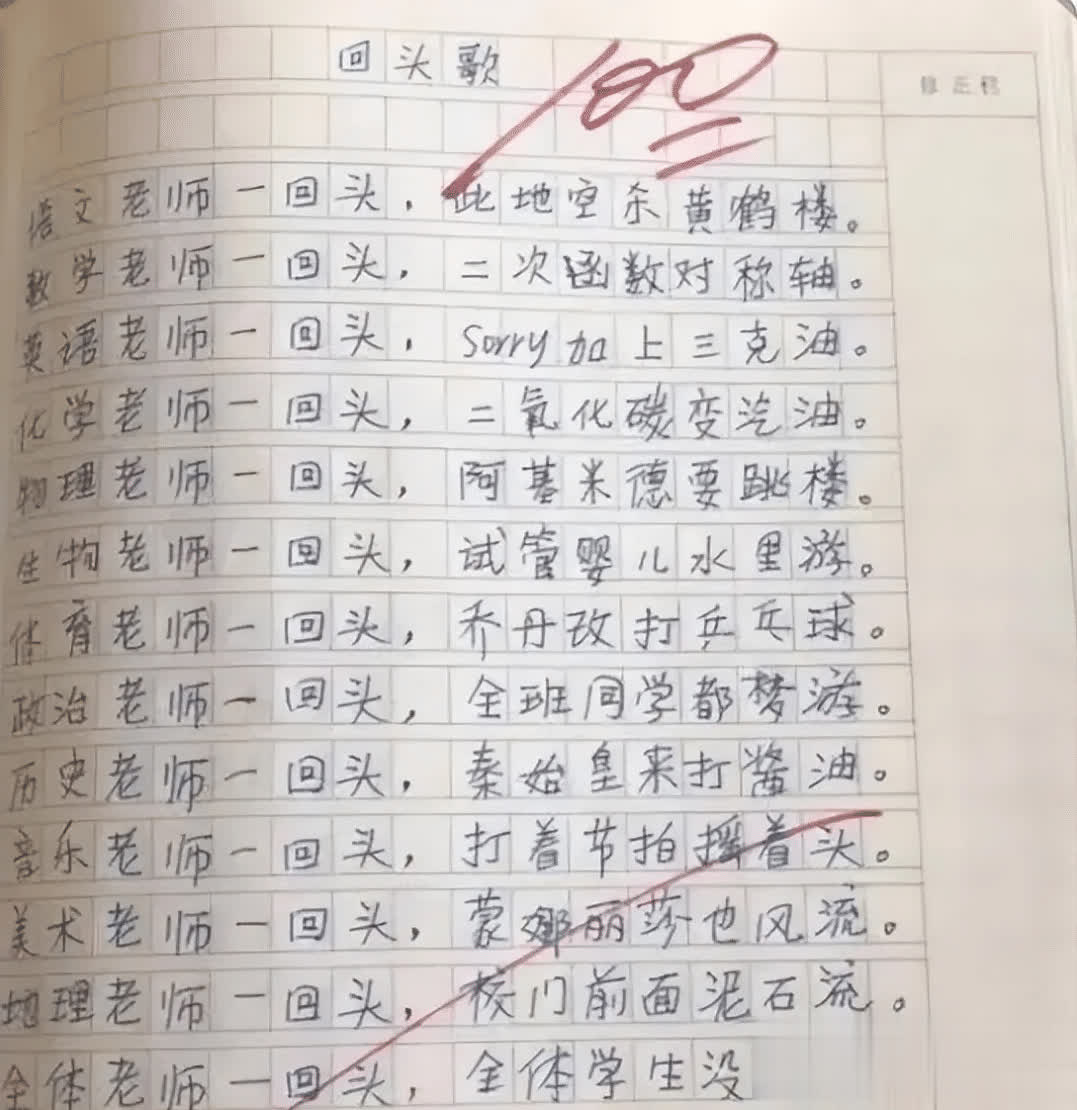 回头歌
100
修正栏
语文老师一回头，此地空杀黄鹤楼。
数学老师一回头，二次函数对称轴。
英语老师一回头，Sorry加上三克油。
化学老师一回头，二氧化碳变汽油。
物理老师一回头，阿基米德要跳楼。
生物老师一回头，试管婴儿水里游。
体育老师一回头，乔丹改打乒乓球。
政治老师一回头，全班同学都梦游。
历史老师一回头，秦始皇来打酱油。
音乐老师一回头，打着节拍摇着头。
美术老师一回头，蒙娜丽莎也风流。
地理老师一回头，校门前面泥石流。
全体老师一回头，全体学生没